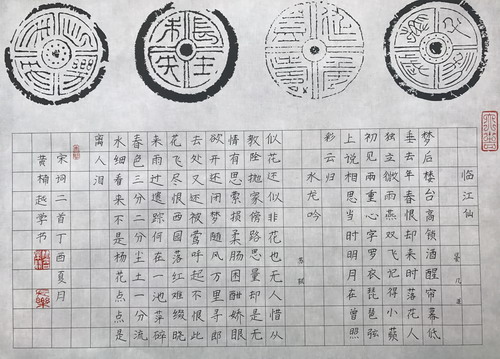 長生未央
临江仙
晏几道
梦后楼台高锁酒醒帘幕低
垂去年春恨却来时落花人
独立微雨燕双飞记得小蘋
初见两重心字罗衣琵琶弦
上说相思当时明月在曾照
彩云归
水龙吟
苏轼
似花还似非花也无人惜从
教坠抛家傍路思量却是无
情有思萦损柔肠困酣娇眼
欲开还闭梦随风万里寻郎
去处又还被莺呼起不恨此
花飞尽恨西园落红难缀晓
来雨过遗踪何在一池萍碎
春色三分二分尘土一分流
水细看来不是杨花点点是
离人泪
宋词二首丁酉夏月
黄楠越学书